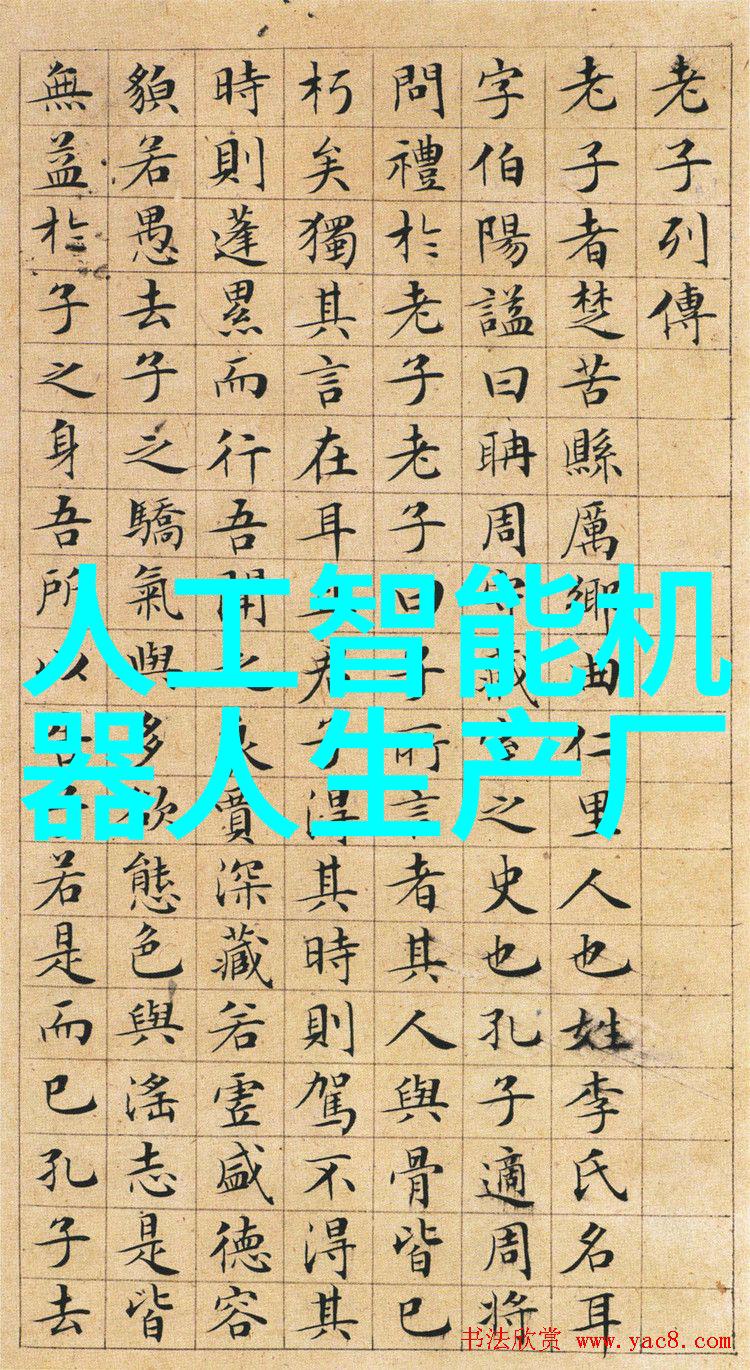 老子列傳
老子者楚苦縣厲鄉曲仁里人也姓李氏名耳
字伯陽謚曰聃周守藏室之史也孔子適周將
問禮於老子老子曰子所言者其人與骨皆已
朽矣獨其言在耳且君子得其時則駕不得其
時則蓬累而行吾聞之良賈深藏若虛盛德容
䫉若愚去子之驕氣與多欲態色與淫志是皆
無益於子之身吾所以告子若是而已孔子去
人工智能机
器人生产厂
书法欣赏 www.yac8.com